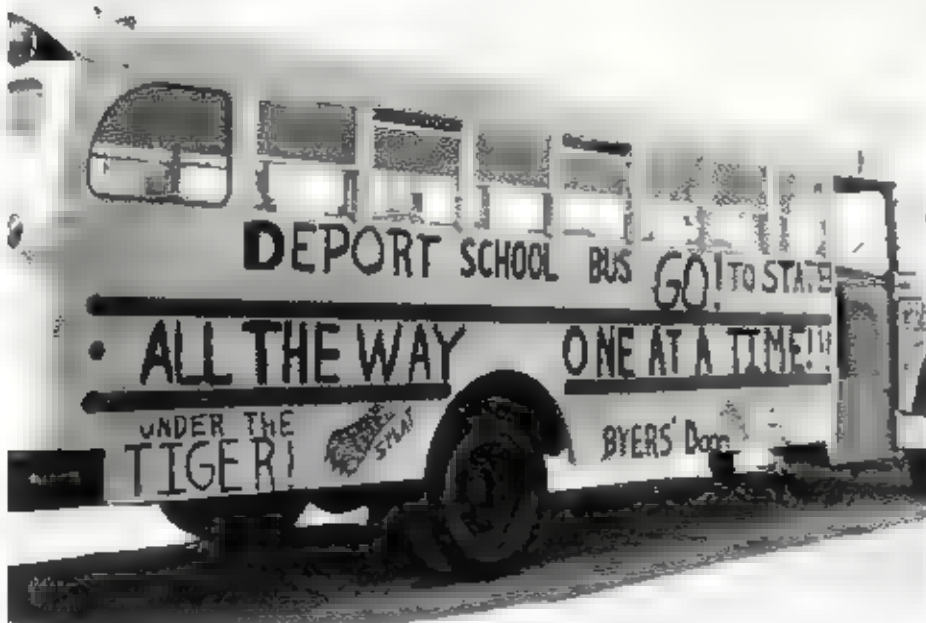 DEPORT SCHOOL BUS
GO! TO STATE
ALL THE WAY
ONE AT A TIME!!
UNDER THE
TIGER!
BYERS'